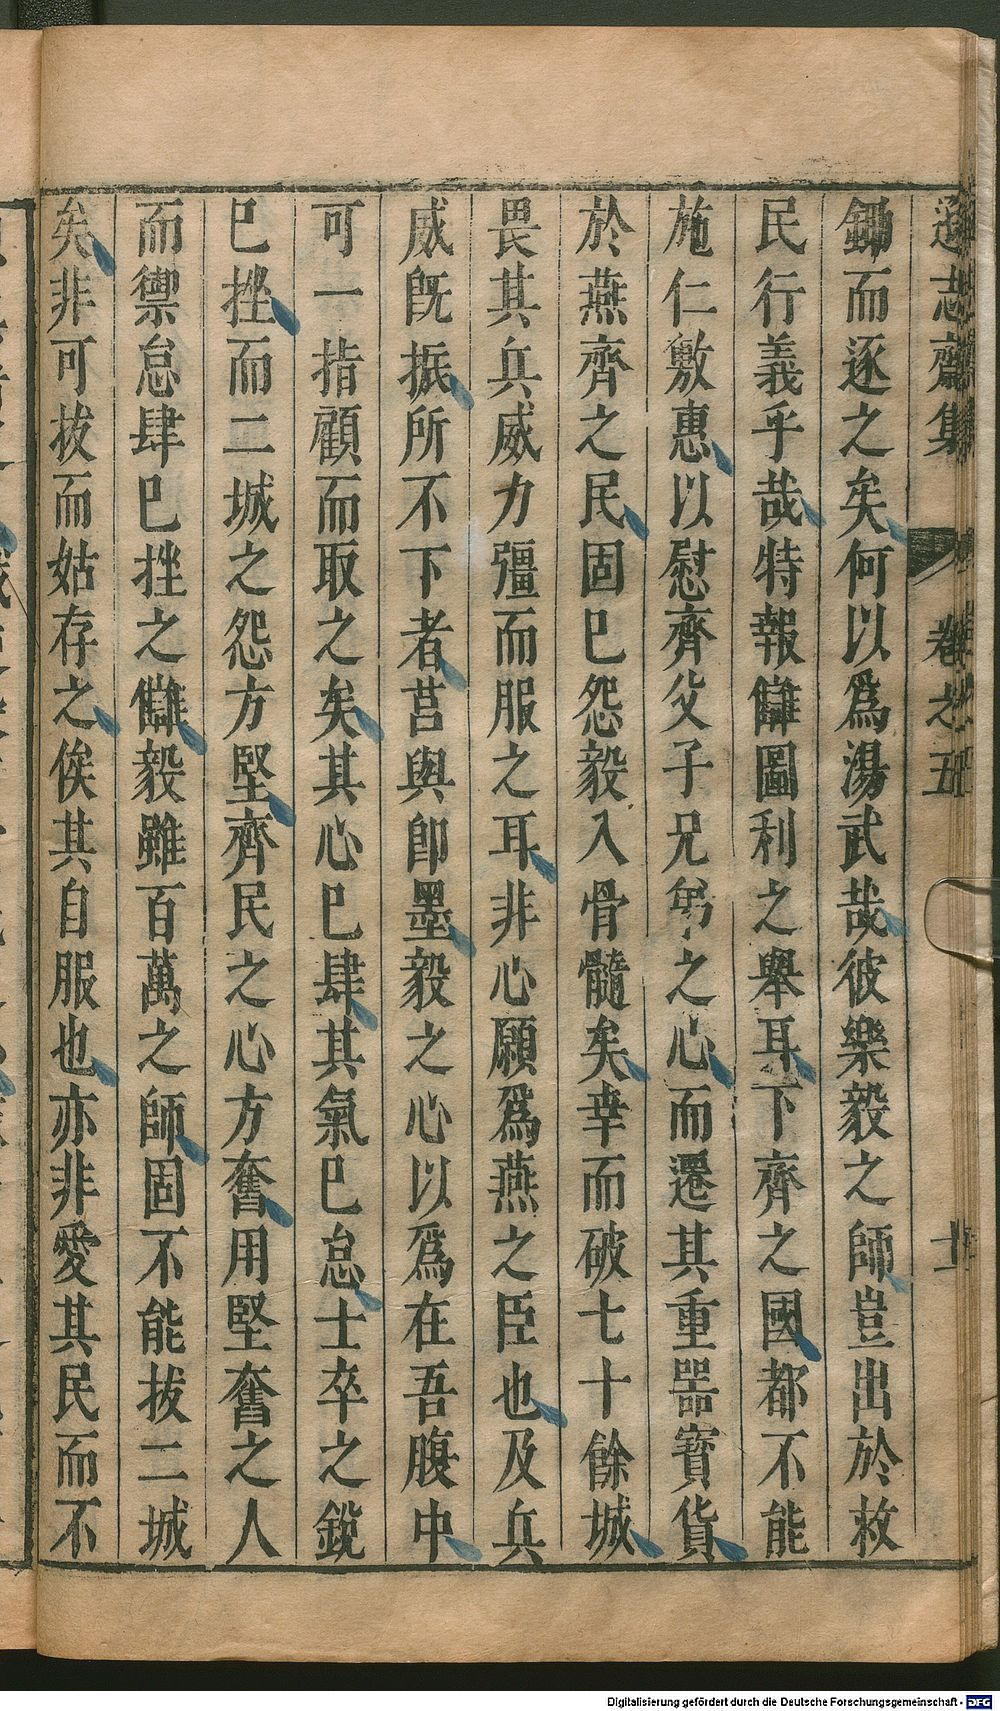 遜志齋集 卷之五 十
鋤而逐之矣何以爲湯武哉彼樂毅之師豈出於救
民行義乎哉特報讎圖利之舉耳下齊之國都不能
施仁敷惠以慰齊父子兄弟之心而遷其重器寳貨
於燕齊之民固巳怨毅入骨髓矣幸而破七十餘城
畏其兵威力彊而服之耳非心願爲燕之臣也及兵
威旣振所不下者莒與卽墨毅之心以爲在吾腹中
可一指顧而取之矣其心巳肆其氣巳怠士卒之銳
巳挫而二城之怨方堅齊民之心方奮用堅奮之人
而禦怠肆巳挫之讎毅雖百萬之師固不能拔二城
矣非可拔而姑存之俟其自服也亦非愛其民而不
Digitalisierung gefördert durch die Deutsche Forschungsgemeinschaft - DFG